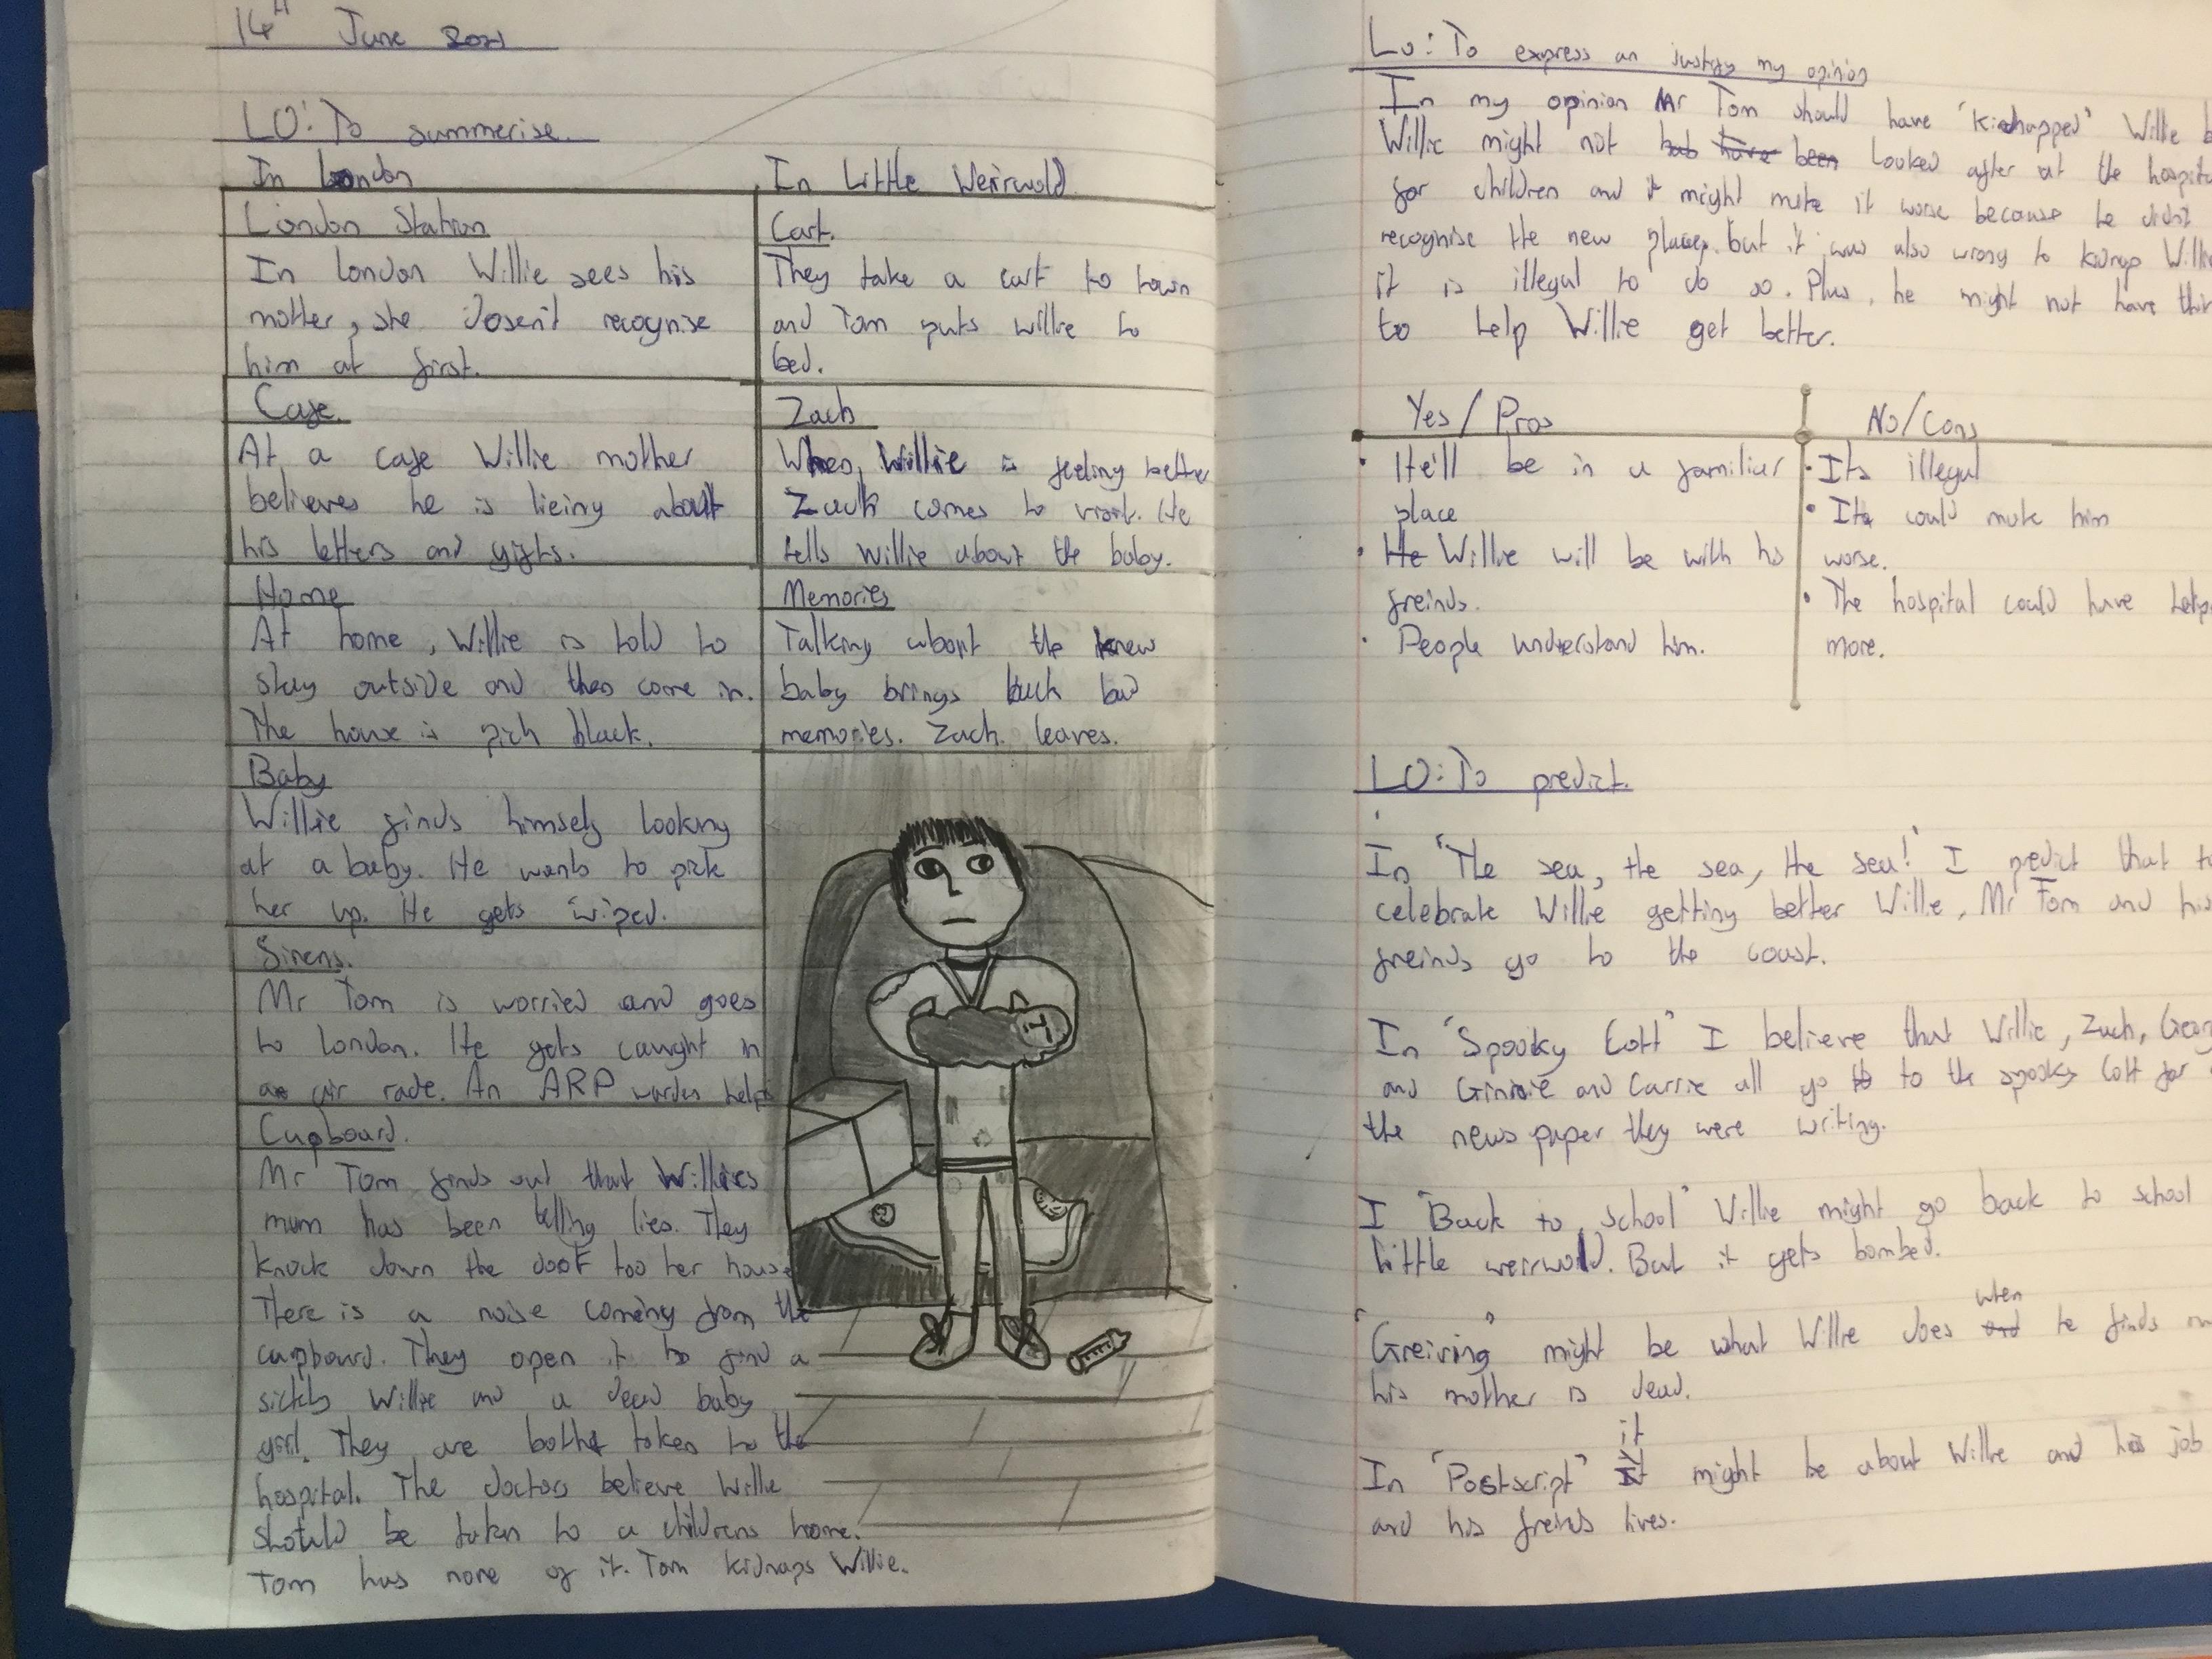 14th June 2021
LO: To summerise.
In London
London Station
In london Willie sees his
mother, she dosen't recognise
him at first.
Cafe.
At a cafe Willie mother
believes he is lieing about
his letters and gifts.
Home
At home, Willie is told to
stay outside and then come in.
The house is pich black.
Baby
Willie finds himself looking
at a baby. He wants to pick
her up. He gets wiped.
Sirens.
Mr Tom is worried and goes
to london. He gets caught in
air rade. An ARP warden helps
Cupboard.
Mr Tom finds out that Willies
mum has been telling lies. They
knock down the door too her house
There is a noise coming from the
cupboard. They open it to find a
sickly Willie and a dead baby
girl. They are both taken to the
hospital. The doctors believe Willie
should be taken to a childrens home.
Tom has none of it. Tom kidnaps Willie.
In Little Weirwold
Cart.
They take a cart to town
and Tom puts willie to
bed.
Zach
When Willie is feeling better
Zach comes to visit. He
tells Willie about the baby.
Memories
Talking about the knew
baby brings back bad
memories. Zach leaves.
LO: To express an justify my opinion
In my opinion Mr Tom should have "kidnapped" Willie
Willie might not have been looked after at the
for children and it might make it worse because he didnt
recognise the new place. but it was also wrong to kidnap
it is illegal to do so. Plus, he might not have
to help Willie get better.
Yes/Pros
• He'll be in a familiar
place
• He Willie will be with his
freinds.
• People understand him.
No/Cons
• Its illegal
• It could make him
worse.
• The hospital could have
more.
LO: To predict.
In "The sea, the sea, the sea!" I predict that
celebrate Willie getting better Willie, Mr Tom and his
freinds go to the coast.
In "Spooky Cott" I believe that Willie, Zach,
and Ginnie and Carrie all go to the spooky Cott for
the news paper they were writing.
I "Back to school" Willie might go back to school
little weirwold. But it gets bombed.
"Greiving" might be what Willie does when he finds
his mother is dead.
In "Postscript" it might be about Willie and his job
and his freinds lives.